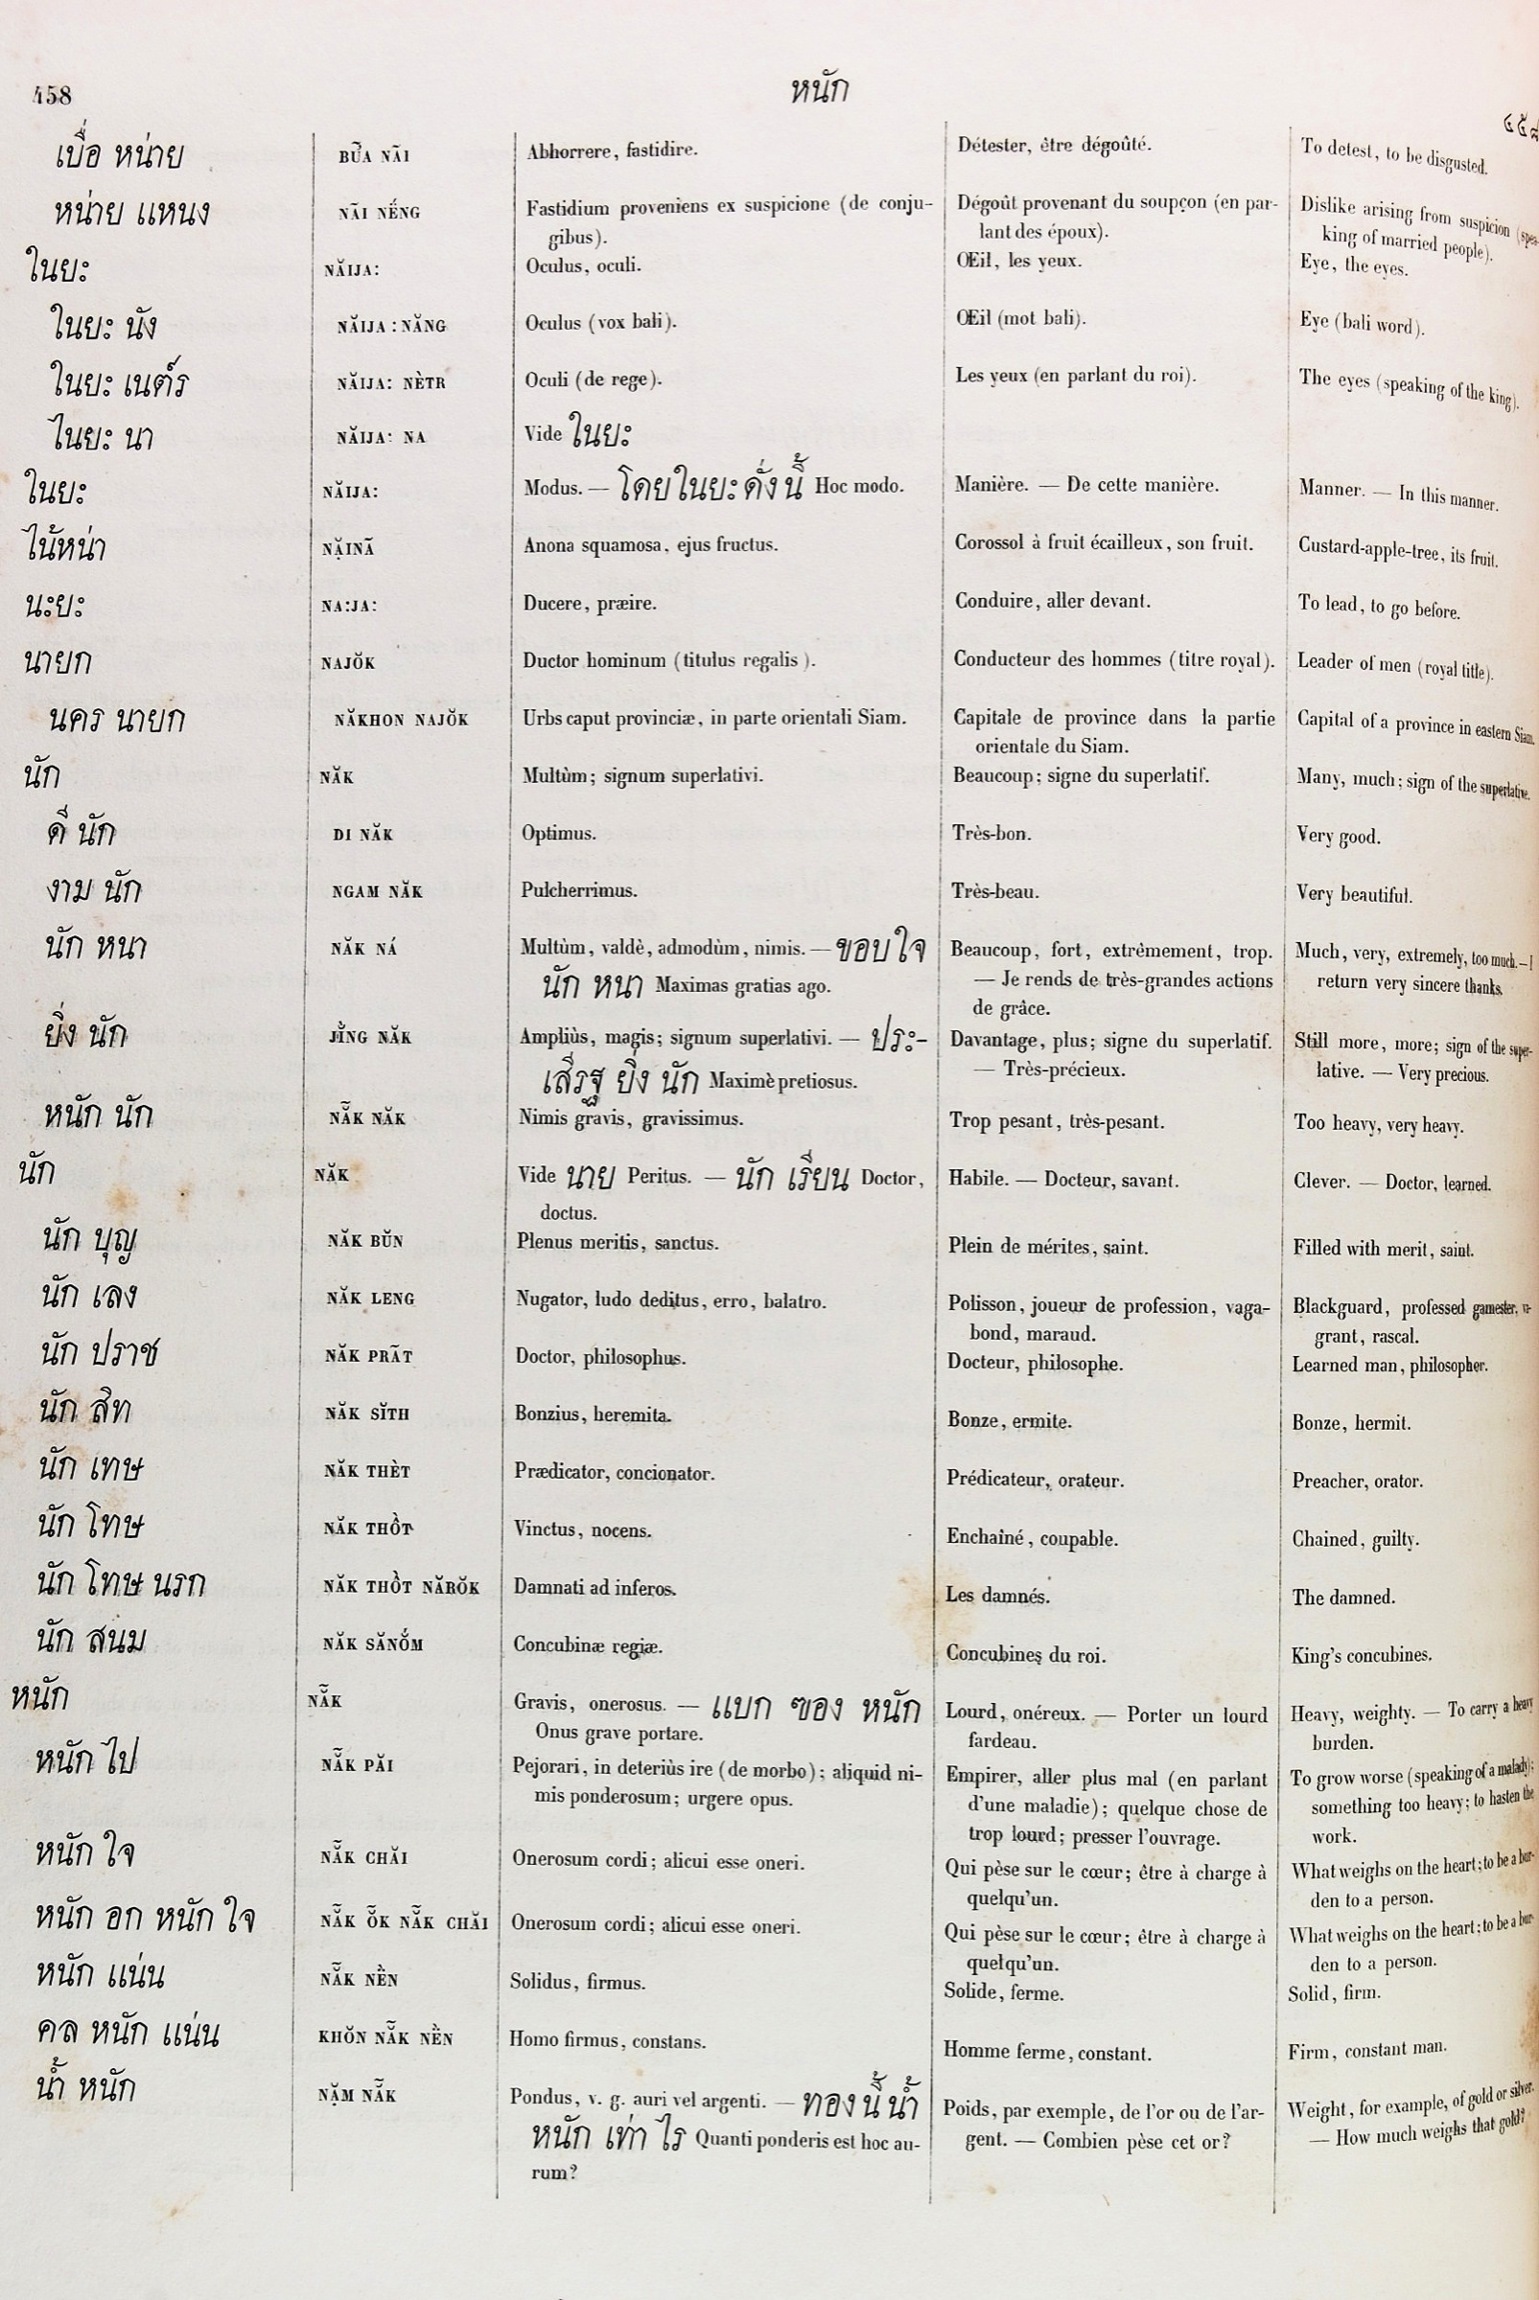 458
หนัก
๔๕๘
เบื่อ หน่าย BỪA NÃI Abhorrere, fastidire. Détester, être dégoûté. To detest, to be disgusted.
หน่าย แหนง NÃI NẾNG Fastidium proveniens ex suspicione (de conju- Dégoût provenant du soupçon (en par- Dislike arising from suspicion (spea-
gibus). lant des époux). king of married people).
ในยะ NĂIJA: Oculus, oculi. Œil, les yeux. Eye, the eyes.
ในยะ นัง NĂIJA: NĂNG Oculus (vox bali). Œil (mot bali). Eye (bali word).
ในยะ เนต์ร NĂIJA: NÈTR Oculi (de rege). Les yeux (en parlant du roi). The eyes (speaking of the king).
ไนยะ นา NĂIJA: NA Vide ในยะ
ในยะ NĂIJA: Modus. — โดยในยะดั่งนี้ Hoc modo. Manière. — De cette manière. Manner. — In this manner.
ไน้หน่า NẶINÃ Anona squamosa, ejus fructus. Corossol à fruit écailleux, son fruit. Custard-apple-tree, its fruit.
นะยะ NA:JA: Ducere, præire. Conduire, aller devant. To lead, to go before.
นายก NAJŎK Ductor hominum (titulus regalis). Conducteur des hommes (titre royal). Leader of men (royal title).
นคร นายก NĂKHON NAJŎK Urbs caput provinciæ, in parte orientali Siam. Capitale de province dans la partie Capital of a province in eastern Siam.
orientale du Siam.
นัก NĂK Multùm; signum superlativi. Beaucoup; signe du superlatif. Many, much; sign of the superlative.
ดี นัก DI NĂK Optimus. Très-bon. Very good.
งาม นัก NGAM NĂK Pulcherrimus. Très-beau. Very beautiful.
นัก หนา NĂK NÁ Multùm, valdè, admodùm, nimis. — ขอบใจ Beaucoup, fort, extrêmement, trop. Much, very, extremely, too much. — I
นัก หนา Maximas gratias ago. — Je rends de très-grandes actions return very sincere thanks.
de grâce.
ยิ่ง นัก JĬNG NĂK Ampliùs, magis; signum superlativi. — ประ- Davantage, plus; signe du superlatif. Still more, more; sign of the super-
เสีรฐ ยิ่ง นัก Maximè pretiosus. — Très-précieux. lative. — Very precious.
หนัก นัก NẴK NĂK Nimis gravis, gravissimus. Trop pesant, très-pesant. Too heavy, very heavy.
นัก NĂK Vide นาย Peritus. — นัก เรียน Doctor, Habile. — Docteur, savant. Clever. — Doctor, learned.
doctus.
นัก บุญ NĂK BŬN Plenus meritis, sanctus. Plein de mérites, saint. Filled with merit, saint.
นัก เลง NĂK LENG Nugator, ludo deditus, erro, balatro. Polisson, joueur de profession, vaga- Blackguard, professed gamester, va-
bond, maraud. grant, rascal.
นัก ปราช NĂK PRÃT Doctor, philosophus. Docteur, philosophe. Learned man, philosopher.
นัก สิท NĂK SĬTH Bonzius, heremita. Bonze, ermite. Bonze, hermit.
นัก เทษ NĂK THÈT Prædicator, concionator. Prédicateur, orateur. Preacher, orator.
นัก โทษ NĂK THÔ̆T Vinctus, nocens. Enchaîné, coupable. Chained, guilty.
นัก โทษ นรก NĂK THÔ̆T NĂRŎK Damnati ad inferos. Les damnés. The damned.
นัก สนม NĂK SĂNỐM Concubinæ regiæ. Concubines du roi. King's concubines.
หนัก NẴK Gravis, onerosus. — แบก ฃอง หนัก Lourd, onéreux. — Porter un lourd Heavy, weighty. — To carry a heavy
Onus grave portare. fardeau. burden.
หนัก ไป NẴK PĂI Pejorari, in deteriùs ire (de morbo); aliquid ni- Empirer, aller plus mal (en parlant To grow worse (speaking of a malady);
mis ponderosum; urgere opus. d'une maladie); quelque chose de something too heavy; to hasten the
trop lourd; presser l'ouvrage. work.
หนัก ใจ NẴK CHĂI Onerosum cordi; alicui esse oneri. Qui pèse sur le cœur; être à charge à What weighs on the heart; to be a bur-
quelqu'un. den to a person.
หนัก อก หนัก ใจ NẴK ỎK NẴK CHĂI Onerosum cordi; alicui esse oneri. Qui pèse sur le cœur; être à charge à What weighs on the heart; to be a bur-
quelqu'un. den to a person.
หนัก แน่น NẴK NỀN Solidus, firmus. Solide, ferme. Solid, firm.
คล หนัก แน่น KHŎN NẴK NỀN Homo firmus, constans. Homme ferme, constant. Firm, constant man.
น้ำ หนัก NẶM NẴK Pondus, v. g. auri vel argenti. — ทองนี้น้ำ Poids, par exemple, de l'or ou de l'ar- Weight, for example, of gold or silver.
หนัก เท่า ไร Quanti ponderis est hoc au- gent. — Combien pèse cet or? — How much weighs that gold?
rum?